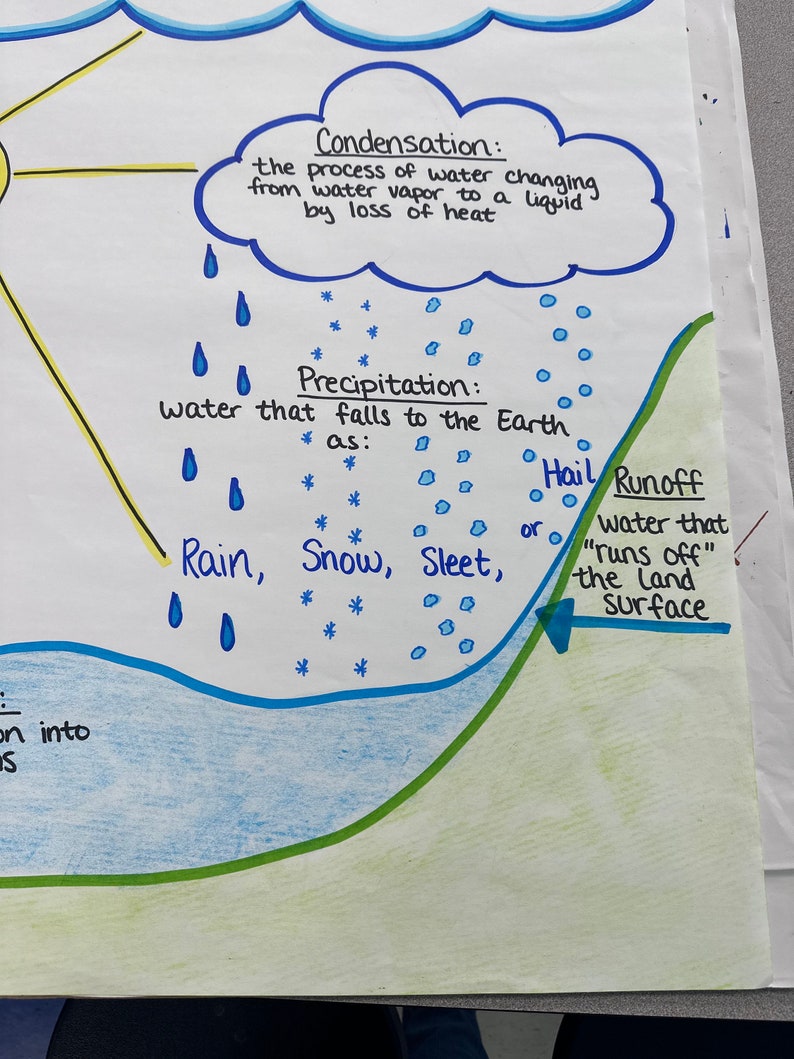 Condensation:
the process of water changing
from water vapor to a liquid
by loss of heat
Precipitation:
water that falls to the Earth
as:
Rain, Snow, Sleet,
or
Hail
Runoff
water that
"runs off"
the land
surface
into